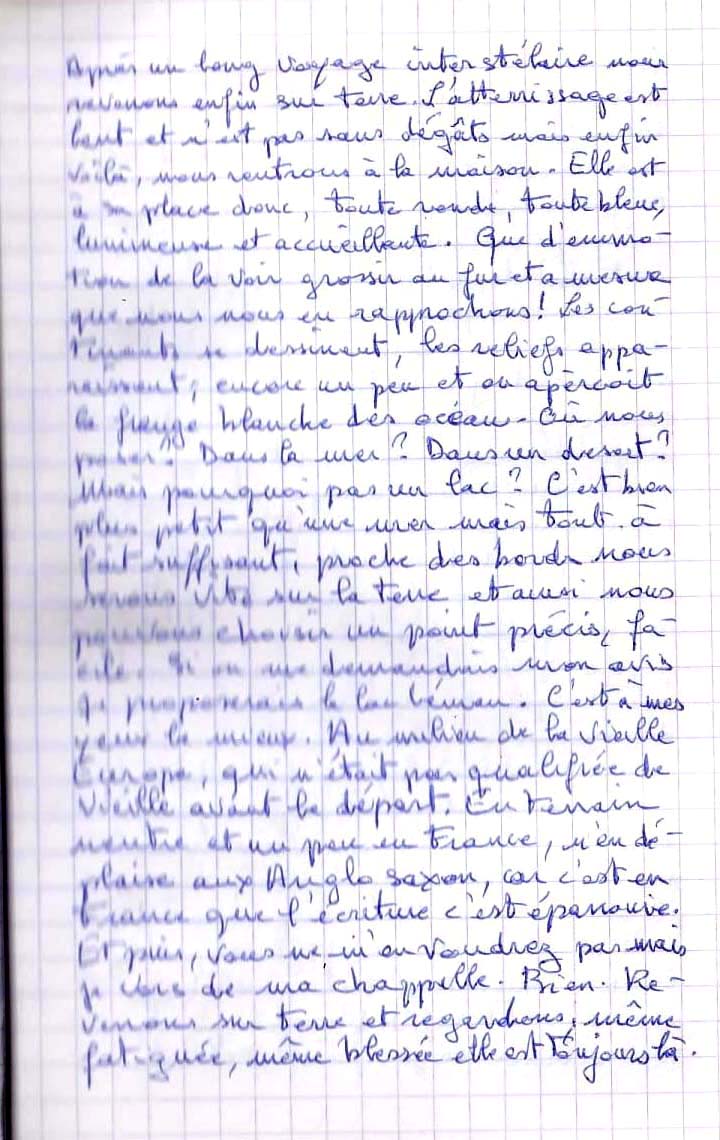 Après un long voyage interstélaire nous
revenons enfin sur terre. L'atterrissage est
lent et n'est pas sans dégâts mais enfin
voilà, nous rentrons à la maison. Elle est
à sa place donc, toute ronde, toute bleue,
lumineuse et accueillante. Que d'emmo-
tion de la voir grossir au fur et a mesure
que nous nous en rapprochons! Les con-
tinents se dessinent, les reliefs appa-
raissent, encore un peu et on aperçoit
la frange blanche des océan. Où nous
poser? Dans la mer? Dans un desert?
Mais pourquoi pas un lac? C'est bien
plus petit qu'une mer mais tout à
fait suffisant, proche des bords nous
serons vite sur la terre et aussi nous
pouvons choisir un point précis, fa-
cile. Si on me demandais mon avis
je proposerais le lac Léman. C'est à mes
yeux le mieux. Au milieu de la vieille
Europe, qui n'était pas qualifiée de
vieille avant le départ. En terrain
neutre et un peu en France, n'en dé-
plaise aux Anglo saxon, car c'est en
France que l'écriture c'est épanouie.
Et puis, vous ne m'en voudrez pas mais
je de ma chappelle. Bien. Re-
venons sur terre et regardons, même
fatiguée, même blessée elle est toujours là.